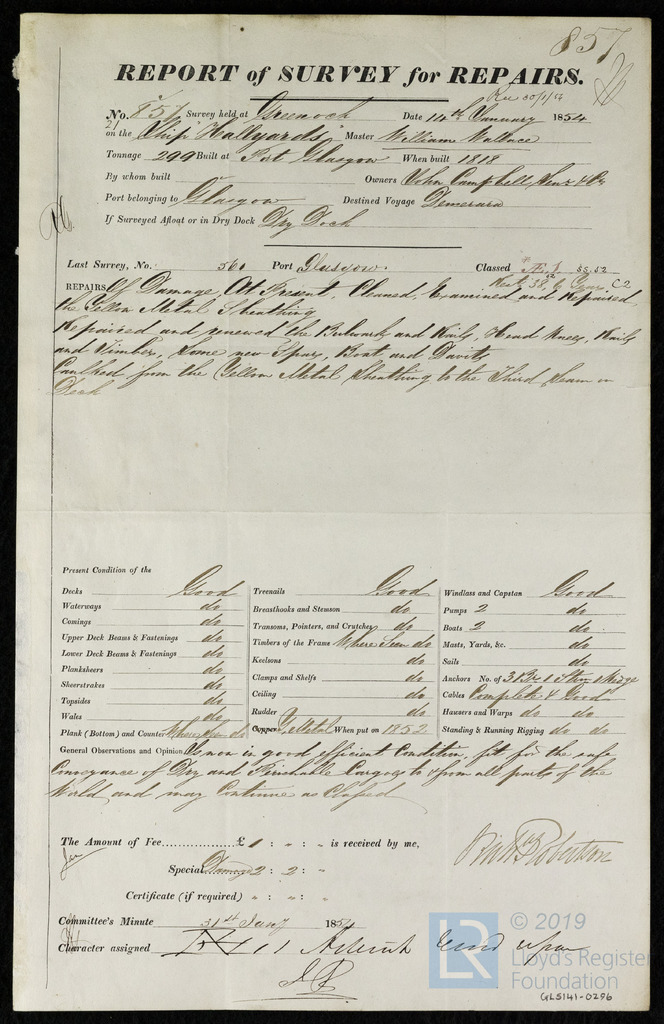 857
REPORT of SURVEY for REPAIRS.
No. 857 Survey held at Greenock Date 14th January 1854
on the Ship "Hallyards" Master William Wallace
Tonnage 299 Built at Port Glasgow When built 1818
By whom built Owners John Campbell, Senr & Co
Port belonging to Glasgow Destined Voyage Demerara
If Surveyed Afloat or in Dry Dock Dry Dock
Last Survey, No. 561 Port Glasgow. Classed Æ.1
REPAIRS Of Damage, At Present, Cleaned, Examined and Repaired
the Yellow Metal Sheathing
Repaired and renewed the Bulwarks and Rails, Head Knees, Rails
and Timber, Some new Spars, Boat and Davits
Caulked from the Yellow Metal Sheathing to the Third Seam on
Deck
Present Condition of the
Decks Good
Waterways do
Comings do
Upper Deck Beams & Fastenings do
Lower Deck Beams & Fastenings do
Planksheers do
Sheerstrakes do
Topsides do
Wales do
Plank (Bottom) and Counter Where Seen do
Treenails Good
Breasthooks and Stemson do
Transoms, Pointers, and Crutches do
Timbers of the Frame Where Seen do
Keelsons do
Clamps and Shelfs do
Ceiling do
Rudder do
Copper Y. Metal When put on 1852
Windlass and Capstan Good
Pumps 2 do
Boats 2 do
Masts, Yards, &c. do
Sails do
Anchors No. of 3 Br 1 Stm 1 Kedge
Cables Complete & Good
Hawsers and Warps do do
Standing & Running Rigging do do
General Observations and Opinion Is now in good efficient Condition, fit for the safe
Conveyance of Dry and Perishable Cargoes to & from all parts of the
World and may Continue as Classed
The Amount of Fee £ 1 : " : " is received by me,
Special Damage 2 : 2 : "
Certificate (if required) " : " : "
Robertson
Committee's Minute 31st Jany 1854
Character assigned
© 2019
LR
Lloyd's Register
Foundation
GLS141-0296